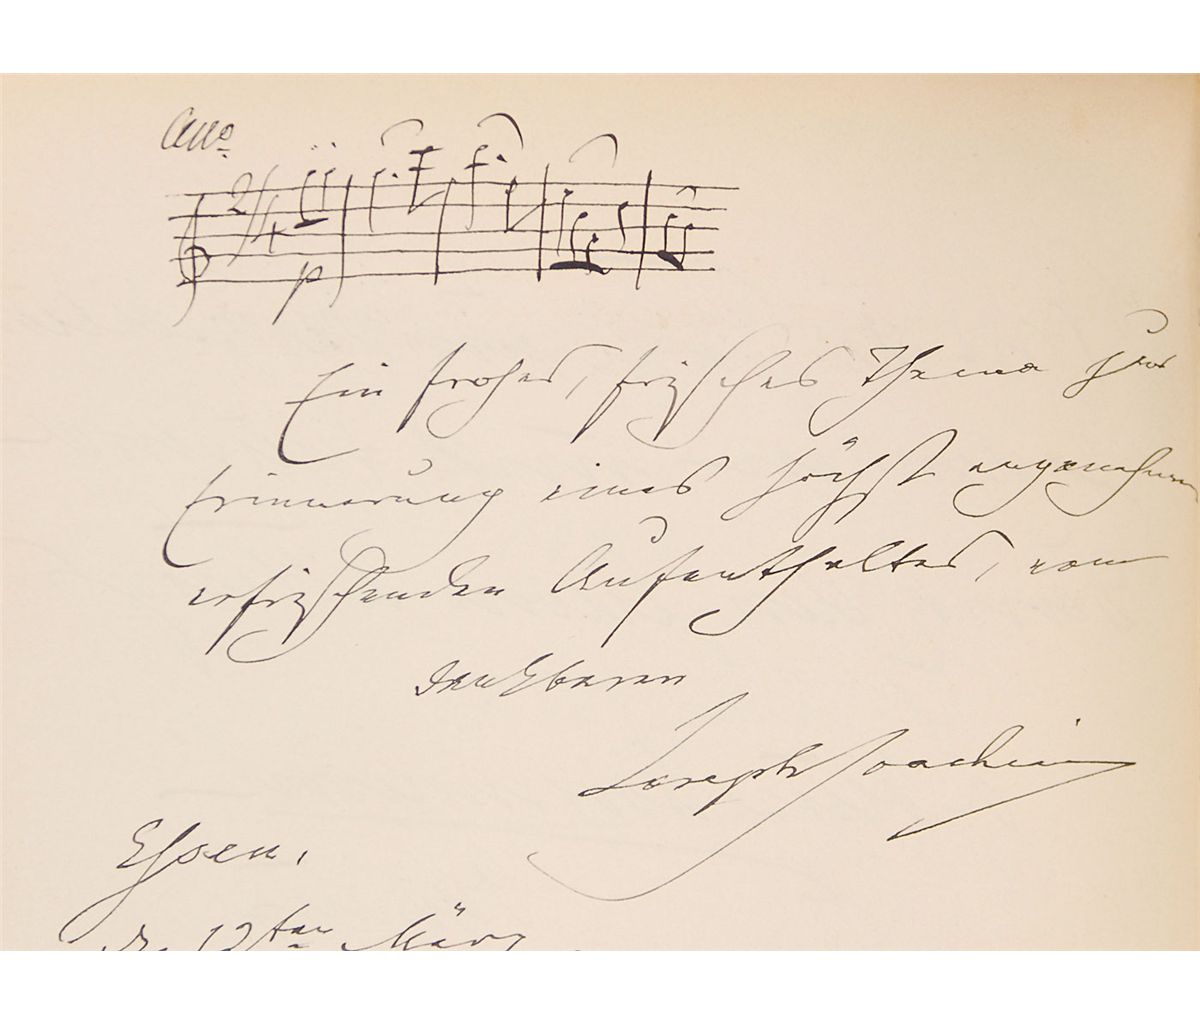 Allo
2/4
p
Ein frohes, frisches Thema zur
Erinnerung eines höchst angenehmen
erfrischenden Aufenthaltes, vom
dankbaren
Joseph Joachim
Essen,
d. 12ten März